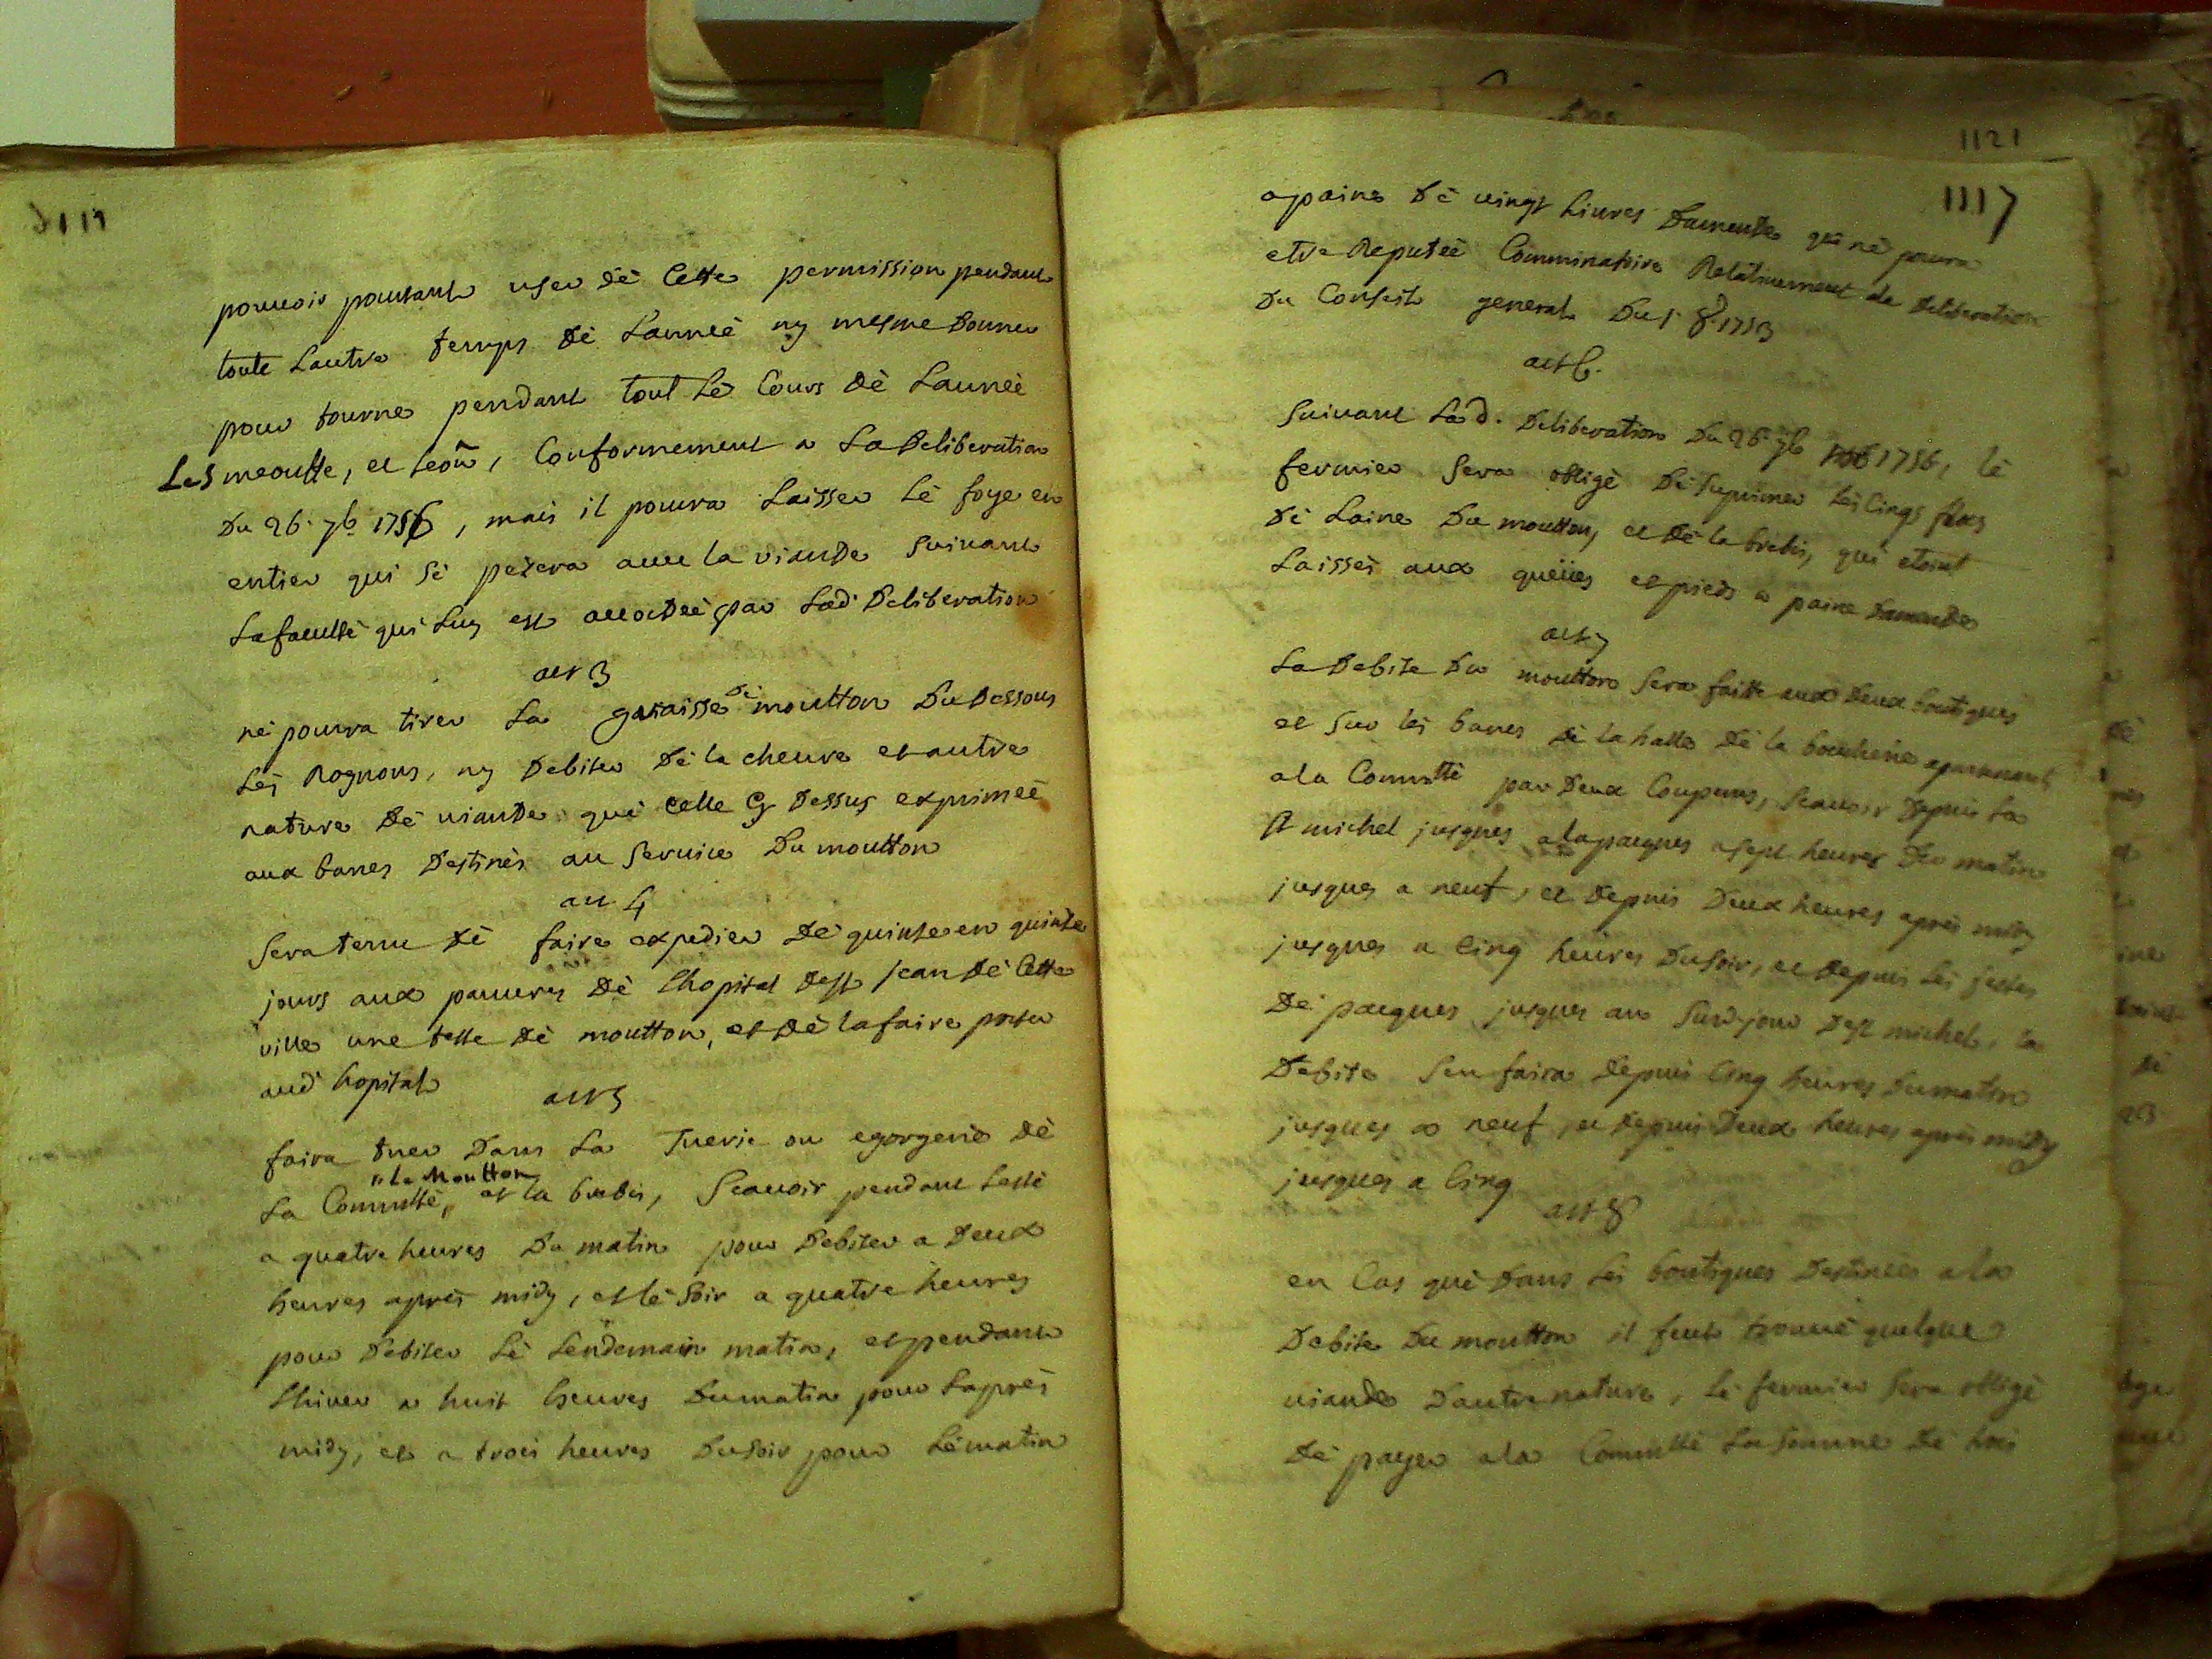 pouvoir pourtant user dè Cette permission pendant
toute Lautre temps dè Lanneè ny mesme donner
pour tourne pendant tout Lè Cours dè Lanneè
Les meoutte, et leon, Conformement a La Deliberation
Du 26. 7b. 1756, mais il pourra Laisser Lè foye en
entier qui sè pezera avec la viande Suivant
La facultè qui Luy est accordeè par Lad. Deliberation
art 3
nè pourra tirer La graisse dè moutton Du Dessous
Lès Rognons, ny Debiter Dè la cheure et autre
nature dè viande què celle cy Dessus exprimeè
aux bancs Destinès au Service Du moutton
art 4
Sera tenu dè faire expedier Dè quinze en quinze
jours aux pauvres Dè Lhopital de St jean dè Cette
ville une teste dè moutton, et dè la faire porter
aud. hopital
art 5
faira tuer Dans La Tuerie ou egorgerie dè
"Le Moutton
La Commtè, et la brebis, Scavoir pendant Lestè
a quatre heures Du matin pour Debiter a Deux
heures après midy, et lè Soir a quatre heures
pour Debiter Lè Lendemain matin, et pendant
Lhiver a huit heures Du matin pour Laprès
midy, et a trois heures Du Soir pour Lè matin
1121
1117
a paine dè vingt Livres Damende què nè pourra
etre Reputeè Comminatoire Relativement a la Deliberation
Du Conseil general Du 1. 8. 1753
art 6.
Suivant Lad. Deliberation Du 26. 7b 1756, lè
fermier Sera obligè Dè Suprimer Lès Cinqs
dè Laine Du moutton, et dè la brebis, qui etoint
Laissès aux queües et pieds a paine Damende
art 7
La Debite Du moutton Sera faitte aux Deux boutiques
et Sur lès bancs dè la halle dè la boucherie apartenant
a la Commtè par Deux Coupeurs, Scavoir Depuis La
St michel jusques a la paques a sept heures Du matin
jusques a neuf, et Depuis Deux heures après midy
jusques a Cinq heures Du Soir, et Depuis Lès festes
Dè paques jusques au Surd. jour de St michel, la
Debite Sen faira Depuis Cinq heures Du matin
jusques a neuf, et Depuis Deux heures après midy
jusques a Cinq
art 8
en Cas què Dans Lès boutiques Destineès a la
Debite Du moutton il feut trouvè quelque
viande Dautre nature, Lè fermier Sera obligè
Dè payer a la Commtè La Somme Dè trois